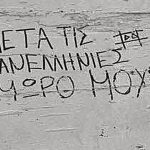 ΜΕΤΑ ΤΙΣ
ΠΑΝΕΛΛΗΝΙΕΣ
ΜΩΡΟ ΜΟΥ